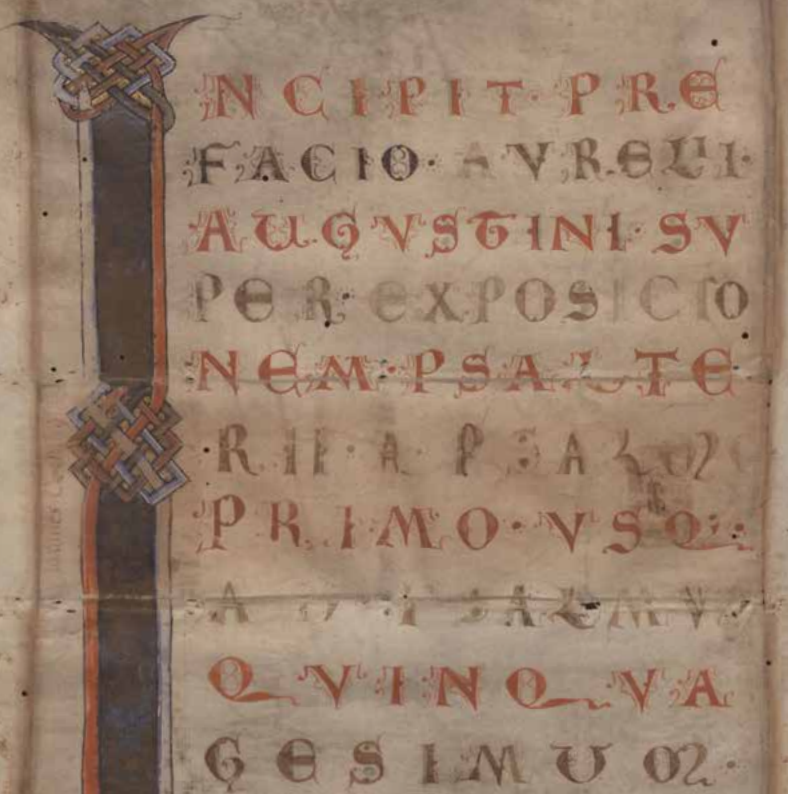 INCIPIT PRE
FACIO· AVRELII·
AUGVSTINI· SV
PER· EXPOSICIO
NEM· PSALTE
RII· A PSALMO
PRIMO· VSQ·
A D PSALMV
QVINQVA
GESIMUM·